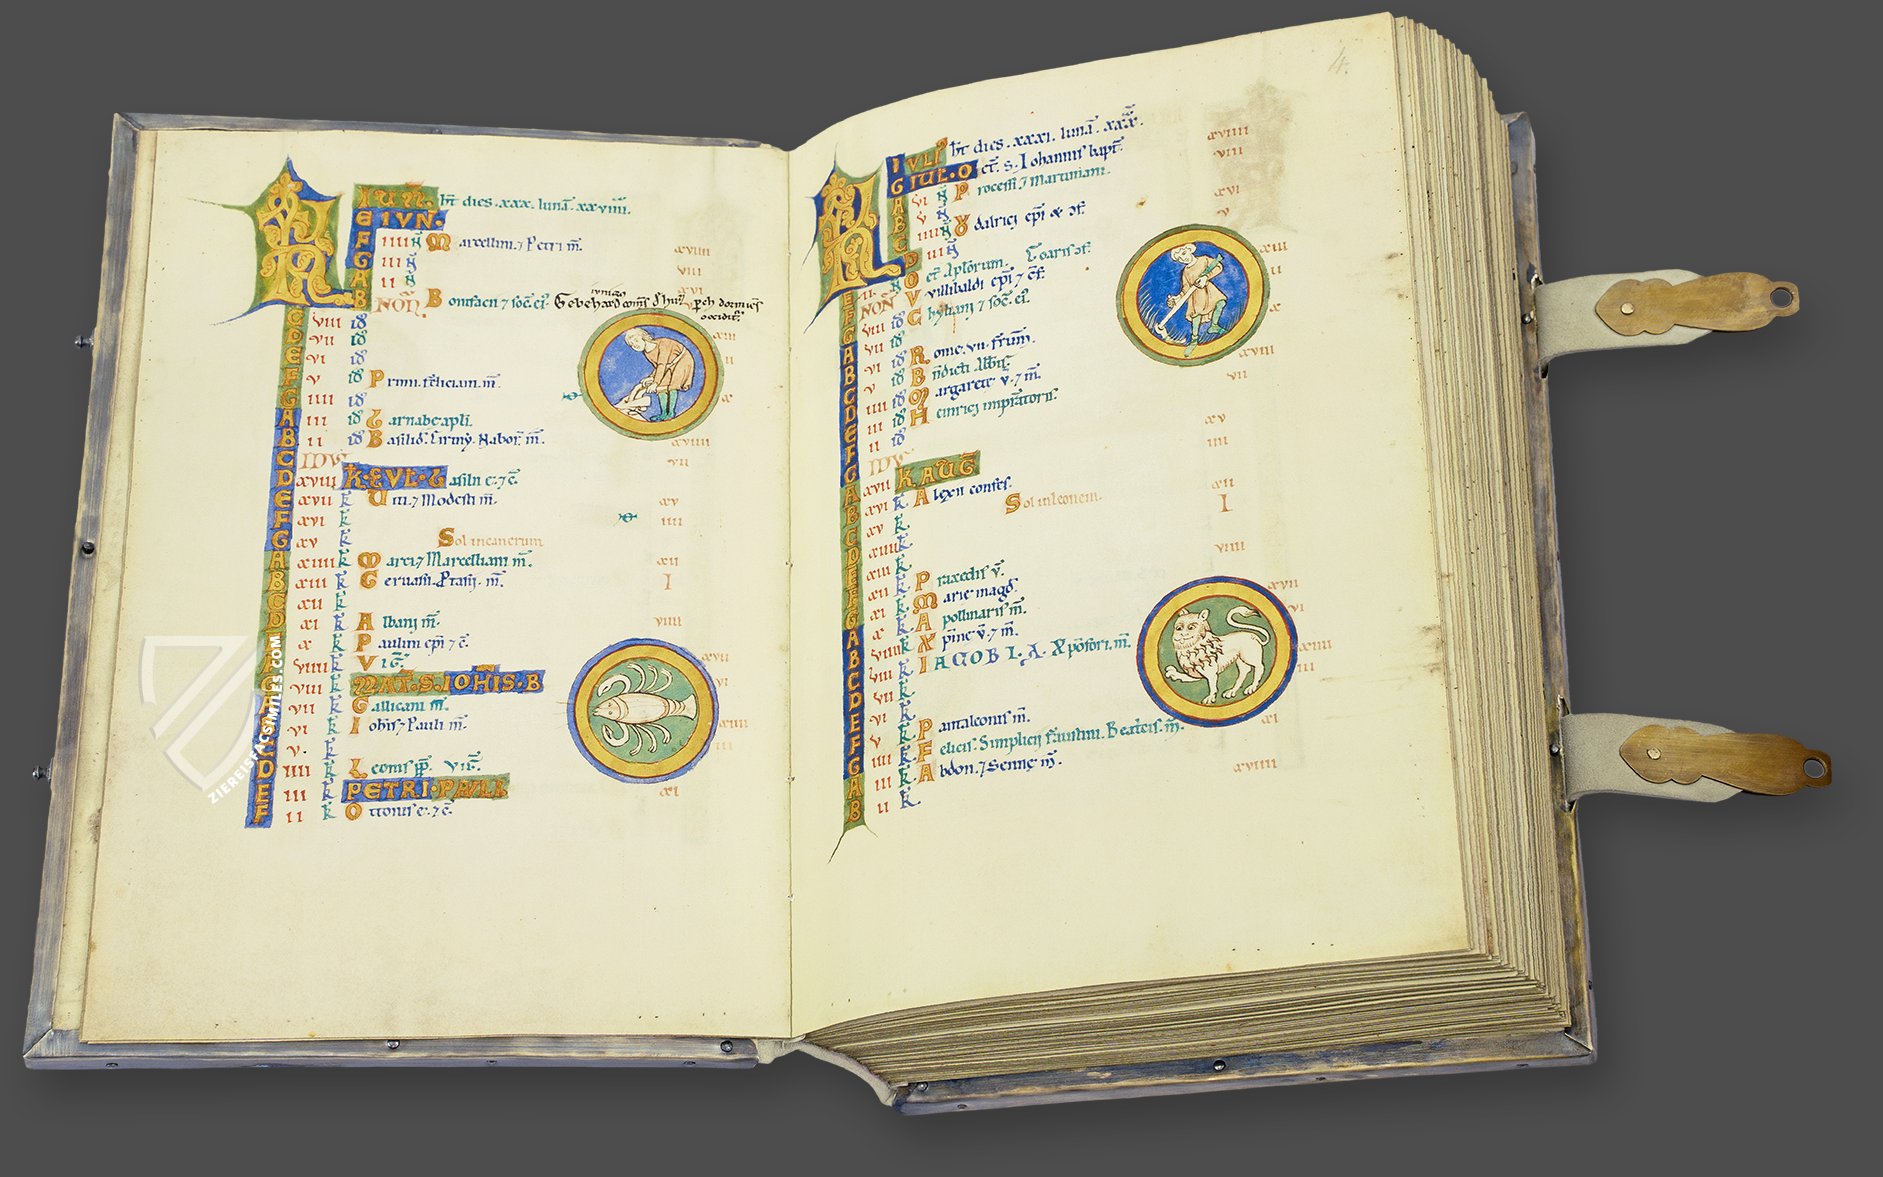 IUN̄. ħt dies. xxx. luna. xxviiii.
E IVN̄.
F IIII Ñ Marcellini. ⁊ Petri m̄.
G III Ñ
A II Ñ
B NOÑ Bonifacii ⁊ soc̄. ei᷒. Gebehard
C VIII id᷒
D VII id᷒
E VI id᷒
F V id᷒ Primi. feliciani. m̄.
G IIII id᷒
A III id᷒ Barnabe apłi.
B II id᷒ Basilid. Cirini. Nabor̄. m̄.
C IDV᷒
D XVIII K. IVL. Basilii e. ⁊ c̄.
E XVII k Viti. ⁊ Modesti m̄.
F XVI k
G XV k Sol in cancrum
A XIIII k Marci ⁊ Marcelliani m̄.
B XIII k Geruasii. Ptasii. m̄.
C XII k
D XI k Albani m̄.
X k Paulini ep̄i ⁊ c̄.
VIIII k VIG̅.
VIII k NAT̄. S. IOHIS. B
VII k Gallicani m̄.
VI k Iohis ⁊ Pauli m̄.
V. k
D IIII k Leonis pp̄. VIG̅.
E III k PETRI. PAVLI
F II k Ottonis e. ⁊ c̄.
xviiii
viii
xvi
xiii
ii
x
xviii
vii
xv
iiii
xii
I
viiii
xvii
vi
xiiii
iii
xi
ZIEREIS FACSIMILES.COM
4.
IVLI᷒ ħt dies. xxxi. luna. xxx.
G IUL. Oct̄. S. Iohannis bapt̄.
A VI Ñ Processi ⁊ Martiniani.
B V Ñ
C IIII Ñ Vdalrici ep̄i & cf̄.
D III Ñ
II Ñ Oct̄ Apłorum.
E NOÑ Villibaldi ep̄i ⁊ cf̄.
F VIII id᷒ Kyliani ⁊ soc̄. ei᷒.
G VII id᷒
A VI id᷒ Rome. vii. fr̄um.
B V id᷒ Bn̄dicti abbis.
C IIII id᷒ Margarete v̄. ⁊ m̄.
D III id᷒ Heinrici imp̄atoris.
E II id᷒
F IDV᷒
G XVII K AUG̅
A XVI k Alexii confes.
B XV k Sol in leonem.
C XIIII k
D XIII k
E XII k Praxedis v̄.
F XI k Marie magd̄.
G X k Apollinaris m̄.
A VIIII k Xp̄ine v̄. ⁊ m̄.
B VIII k IACOBI. A. Xp̄ofori. m̄.
C VII k
D VI k
E V k Pantaleonis m̄.
F IIII k Felicis. Simplicii faustini. Beatricis. m̄.
G III k Abdon. ⁊ Sennes m̄.
B II k
xviiii
viii
xvi
v
xiii
ii
x
xviii
vii
xv
iiii
xii
I
viiii
xvii
vi
xiiii
iii
xi
xviiii